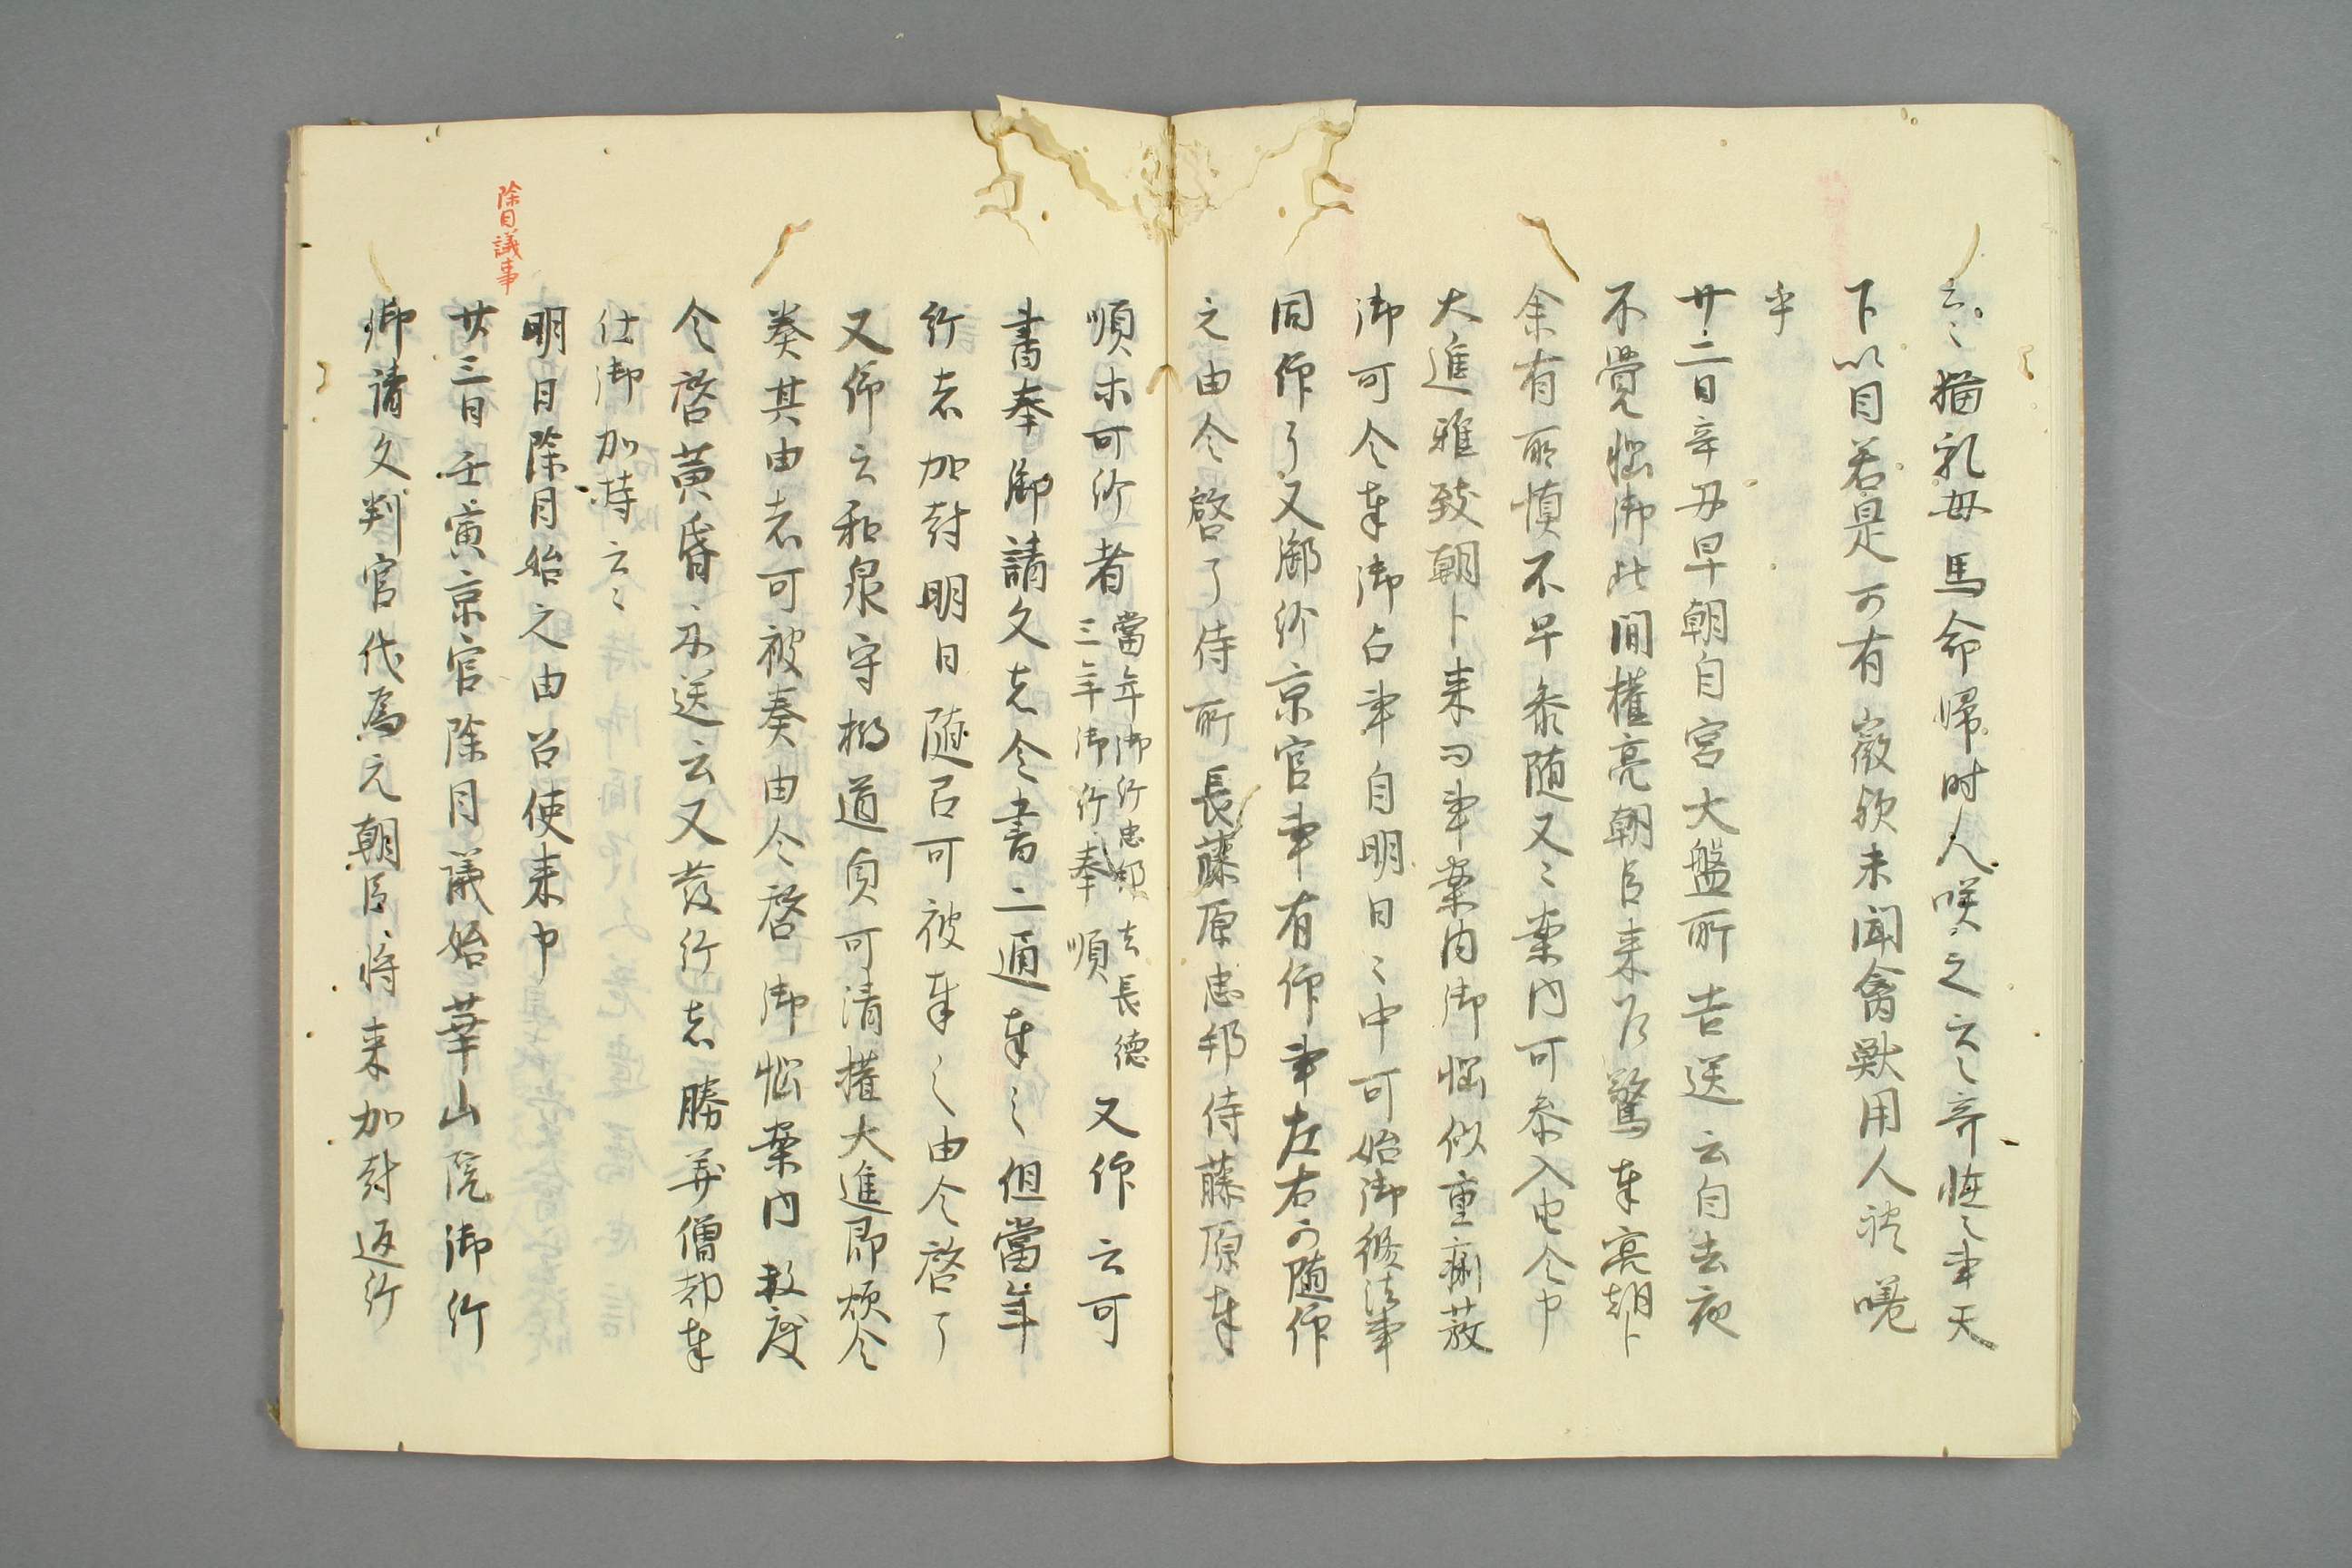 云〻、猫乳母馬命婦、時人咲之云〻、奇恠〻事、天
下以目、若是可有徴歟、未聞禽獣用人礼、嗟
乎
廿二日辛丑早朝自宮大盤所告送云、自去夜
不覚悩御、此間権亮朝臣来、乍驚奉亮朝臣
余有所慎不早参、随又〻案内可参入也、令申
大進雅致朝臣来、問事案内、御悩似重痢、藪
御可令奉御占事、自明日〻中可始御修法事
同仰了、又御給京官事、有仰事、左右可随仰
之由令啓了、侍所長藤原忠邦、侍藤原奉
順等可給者
當年御給忠邦、去長徳
三年御給奉順
又仰云、可
書奉御請文者、令書二通奉之、但當年
給者加封、明日随召可被奉之由、令啓了
又仰云、和泉守橘道貞可清権大進、即煩令
奏其由者、可被奏由令啓、御悩案内数度
令啓、黄昏示送云、又發給者、勝算僧都奉
仕御加持云〻
明日除目始之由、召使来申
除目議事
廿三日壬寅京官除目議始、華山院御給
御請文判官代為元朝臣将来、加封返給